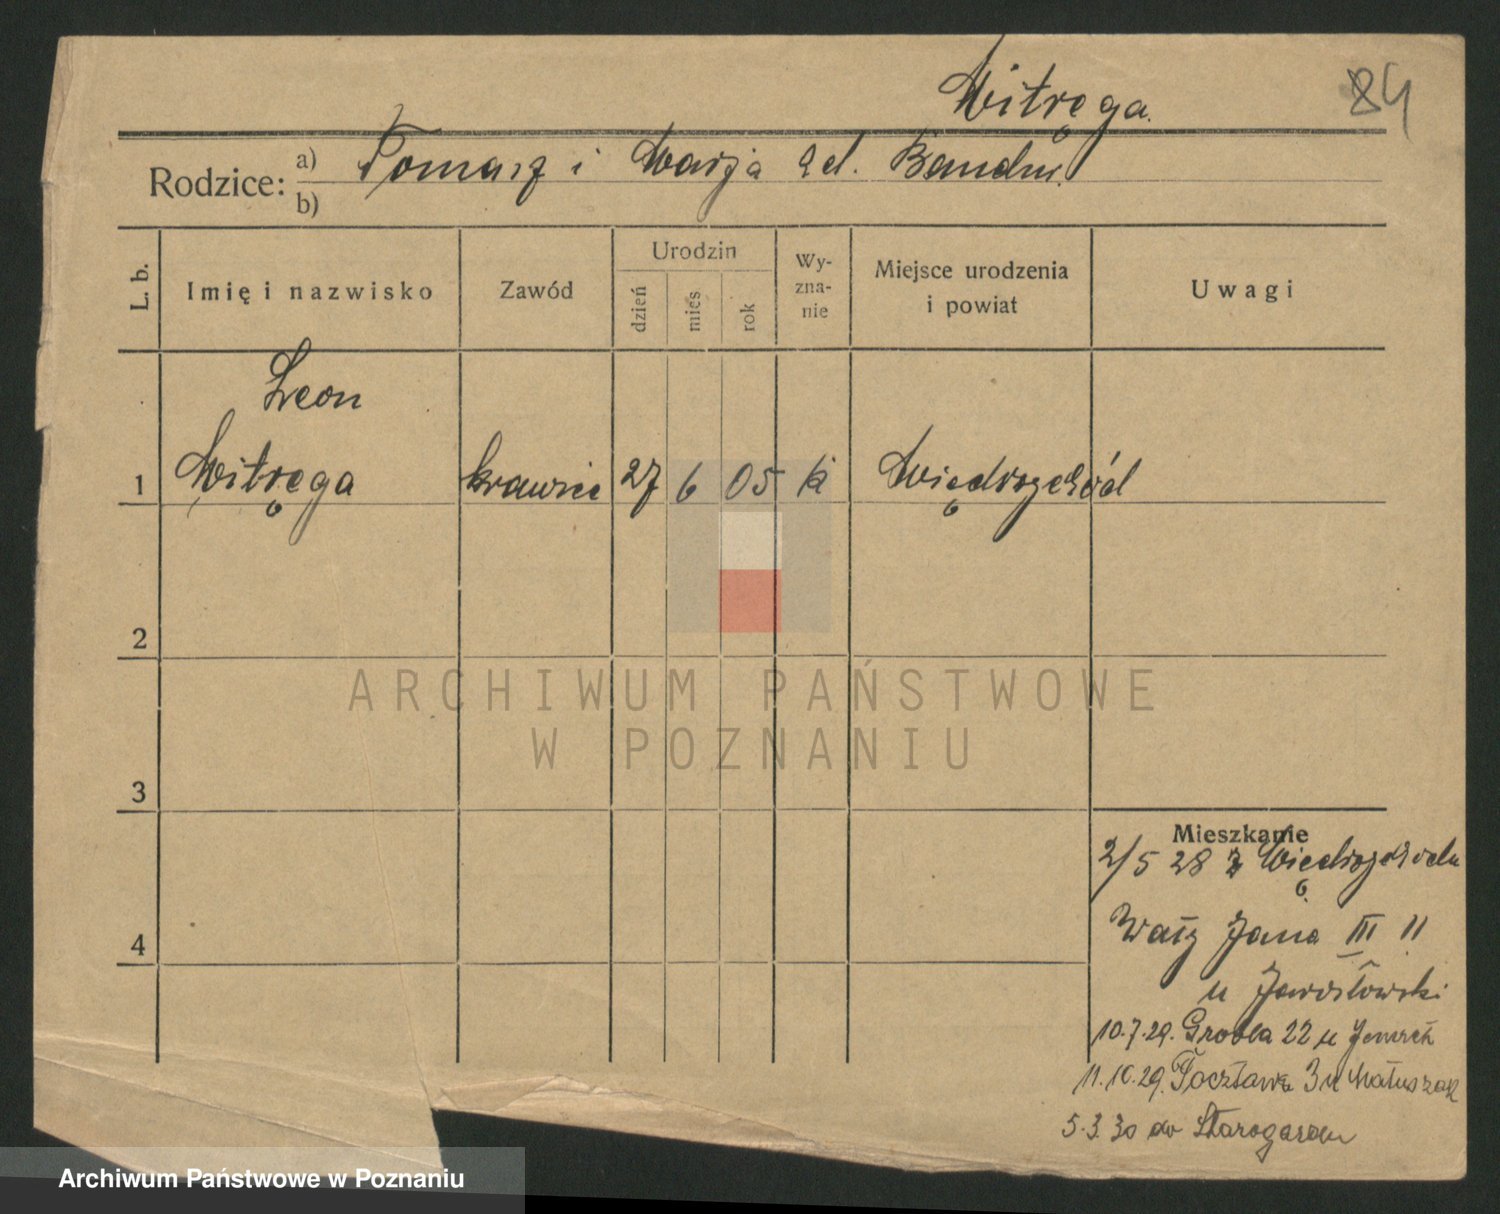 Witręga
84
Rodzice: a) Tomasz i Marja
b)
L. b.
Imię i nazwisko
Zawód
Urodzin
dzień
mies
rok
Wy-
zna-
nie
Miejsce urodzenia
i powiat
Uwagi
Leon
1 Witręga krawiec 27 6 05 k Międrzychód
2
3
4
Mieszkanie
2/5 28 z Międrzychodu
Wały Jana III 11
u Jarosławski
10.7.29. Grobla 22 u
11.10.29. Pocztowa 3 u Matuszak
5.3.30 do Starogardu
ARCHIWUM PAŃSTWOWE
W POZNANIU
Archiwum Państwowe w Poznaniu